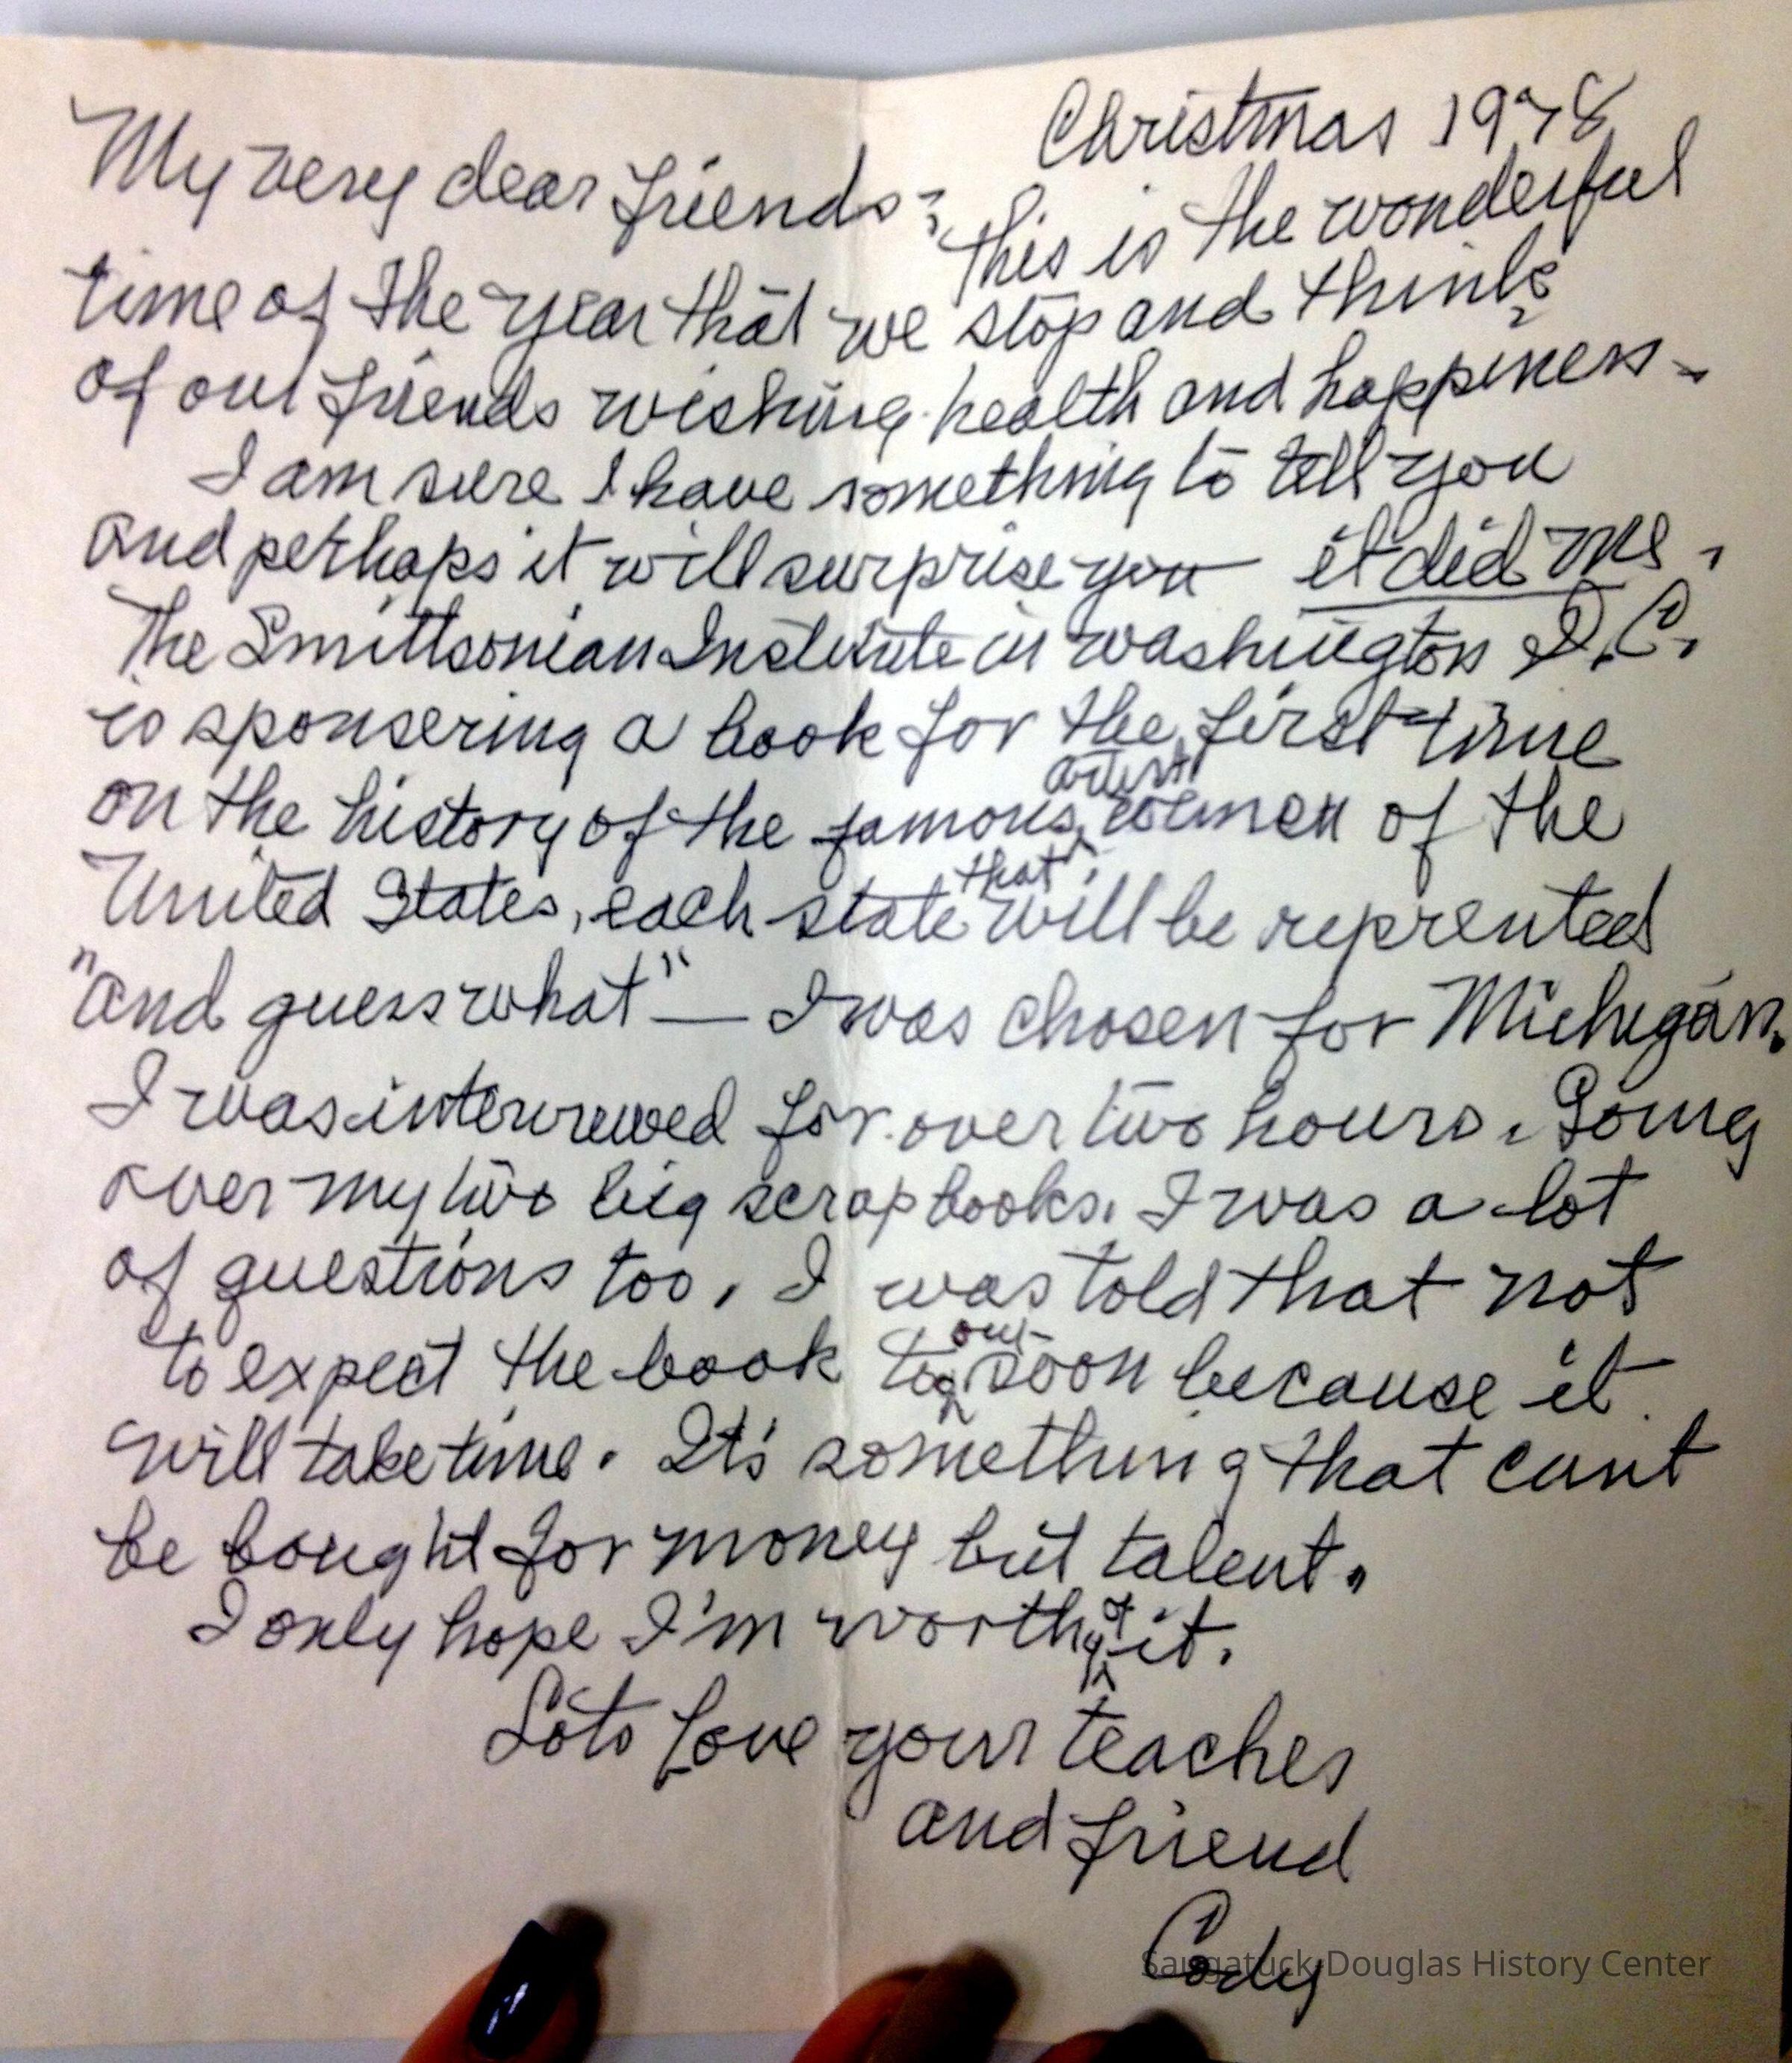 Christmas 1978
My very dear friends;
This is the wonderful
time of the year that we stop and think
of our friends wishing health and happiness -
I am sure I have something to tell you
and perhaps it will surprise you it did me,
The Smittsonian Institute in Washington D.C.
is sponsering a book for the first time
on the history of the famous artist women of the
United States, each state that will be reprented
"and guess what" — I was chosen for Michigan.
I was interviewed for over two hours. Going
over my two big scrap books. I was a lot
of questions too, I was told that not
to expect the book out soon because it
will take time. It's something that cant
be bought for money but talent.
I only hope I'm worthy of it.
Lots Love your teacher
and friend
Cody
Saugatuck-Douglas History Center